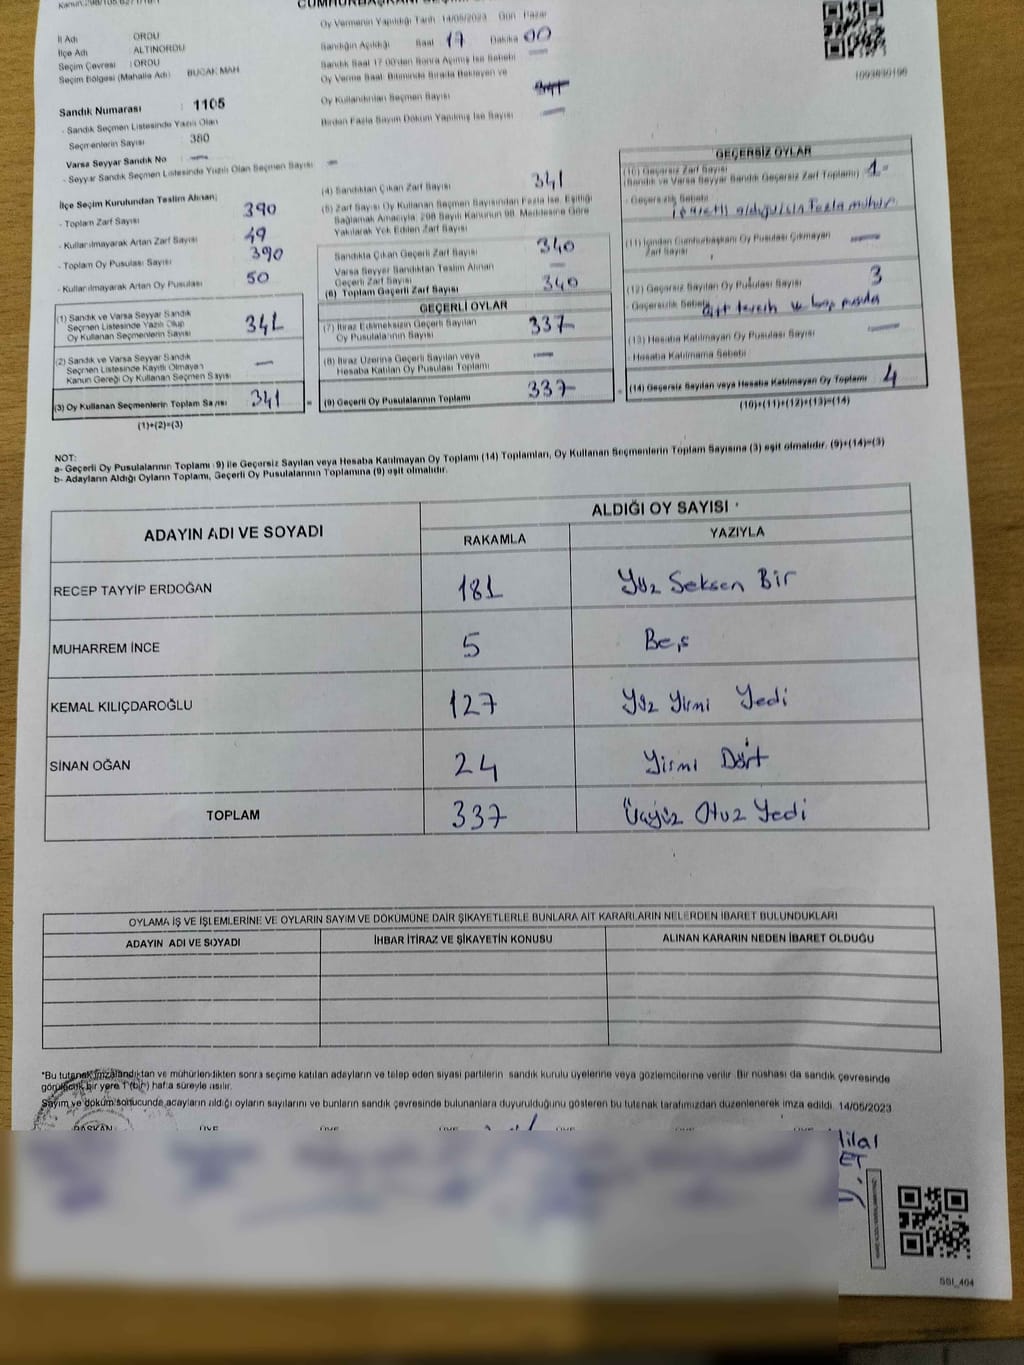 Oy Vermenin Yapıldığı Tarih 14/05/2023 Gün Pazar
İl Adı ORDU
İlçe Adı : ALTINORDU
Seçim Çevresi : ORDU
Seçim Bölgesi (Mahalle Adı) BUCAK MAH
Sandığın Açıldığı Saat 17 Dakika 00
Sandık Saat 17.00'den Sonra Açılmış İse Sebebi
Oy Verme Saati Bitiminde Sırada Bekleyen ve
Oy Kullandırılan Seçmen Sayısı
Birden Fazla Sayım Döküm Yapılmış İse Sayısı
1093830196
Sandık Numarası : 1105
- Sandık Seçmen Listesinde Yazılı Olan
Seçmenlerin Sayısı 380
Varsa Seyyar Sandık No —
- Seyyar Sandık Seçmen Listesinde Yazılı Olan Seçmen Sayısı —
İlçe Seçim Kurulundan Teslim Alınan;
- Toplam Zarf Sayısı 390
- Kullanılmayarak Artan Zarf Sayısı 49
- Toplam Oy Pusulası Sayısı 390
- Kullanılmayarak Artan Oy Pusulası 50
(1) Sandık ve Varsa Seyyar Sandık
Seçmen Listesinde Yazılı Olup
Oy Kullanan Seçmenlerin Sayısı 341
(2) Sandık ve Varsa Seyyar Sandık
Seçmen Listesinde Kayıtlı Olmayan
Kanun Gereği Oy Kullanan Seçmen Sayısı —
(3) Oy Kullanan Seçmenlerin Toplam Sayısı 341
(1)+(2)=(3)
(4) Sandıktan Çıkan Zarf Sayısı 341
(5) Zarf Sayısı Oy Kullanan Seçmen Sayısından Fazla ise, Eşitliği
Sağlamak Amacıyla, 298 Sayılı Kanunun 98. Maddesine Göre
Yakılarak Yok Edilen Zarf Sayısı
Sandıkta Çıkan Geçerli Zarf Sayısı 340
Varsa Seyyar Sandıktan Teslim Alınan
Geçerli Zarf Sayısı —
(6) Toplam Geçerli Zarf Sayısı 340
GEÇERLİ OYLAR
(7) İtiraz Edilmeksizin Geçerli Sayılan
Oy Pusulalarının Sayısı 337
(8) İtiraz Üzerine Geçerli Sayılan veya
Hesaba Katılan Oy Pusulası Toplamı —
(9) Geçerli Oy Pusulalarının Toplamı 337
GEÇERSİZ OYLAR
(10) Geçersiz Zarf Sayısı
(Sandık ve Varsa Seyyar Sandık Geçersiz Zarf Toplamı) 1
- Geçersizlik Sebebi:
olduğu için fazla mühür
(11) İçinden Cumhurbaşkanı Oy Pusulası Çıkmayan
Zarf Sayısı —
(12) Geçersiz Sayılan Oy Pusulası Sayısı 3
- Geçersizlik Sebebi:
çift tercih
(13) Hesaba Katılmayan Oy Pusulası Sayısı —
- Hesaba Katılmama Sebebi
(14) Geçersiz Sayılan veya Hesaba Katılmayan Oy Toplamı 4
(10)+(11)+(12)+(13)=(14)
NOT:
a- Geçerli Oy Pusulalarının Toplamı (9) ile Geçersiz Sayılan veya Hesaba Katılmayan Oy Toplamı (14) Toplamları, Oy Kullanan Seçmenlerin Toplam Sayısına (3) eşit olmalıdır. (9)+(14)=(3)
b- Adayların Aldığı Oyların Toplamı, Geçerli Oy Pusulalarının Toplamına (9) eşit olmalıdır.
ADAYIN ADI VE SOYADI
ALDIĞI OY SAYISI
RAKAMLA YAZIYLA
RECEP TAYYİP ERDOĞAN 181 Yüz Seksen Bir
MUHARREM İNCE 5 Beş
KEMAL KILIÇDAROĞLU 127 Yüz Yirmi Yedi
SİNAN OĞAN 24 Yirmi Dört
TOPLAM 337 Üçyüz Otuz Yedi
OYLAMA İŞ VE İŞLEMLERİNE VE OYLARIN SAYIM VE DÖKÜMÜNE DAİR ŞİKAYETLERLE BUNLARA AİT KARARLARIN NELERDEN İBARET BULUNDUKLARI
ADAYIN ADI VE SOYADI İHBAR İTİRAZ VE ŞİKAYETİN KONUSU ALINAN KARARIN NEDEN İBARET OLDUĞU
*Bu tutanak imzalandıktan ve mühürlendikten sonra seçime katılan adayların ve talep eden siyasi partilerin sandık kurulu üyelerine veya gözlemcilerine verilir. Bir nüshası da sandık çevresinde
görülecek bir yere 1 (bir) hafta süreyle asılır.
Sayım ve döküm sonucunda adayların aldığı oyların sayılarını ve bunların sandık çevresinde bulunanlara duyurulduğunu gösteren bu tutanak tarafımızdan düzenlenerek imza edildi. 14/05/2023
BAŞKAN ÜYE ÜYE ÜYE ÜYE
Hilal
ET
SSI_404